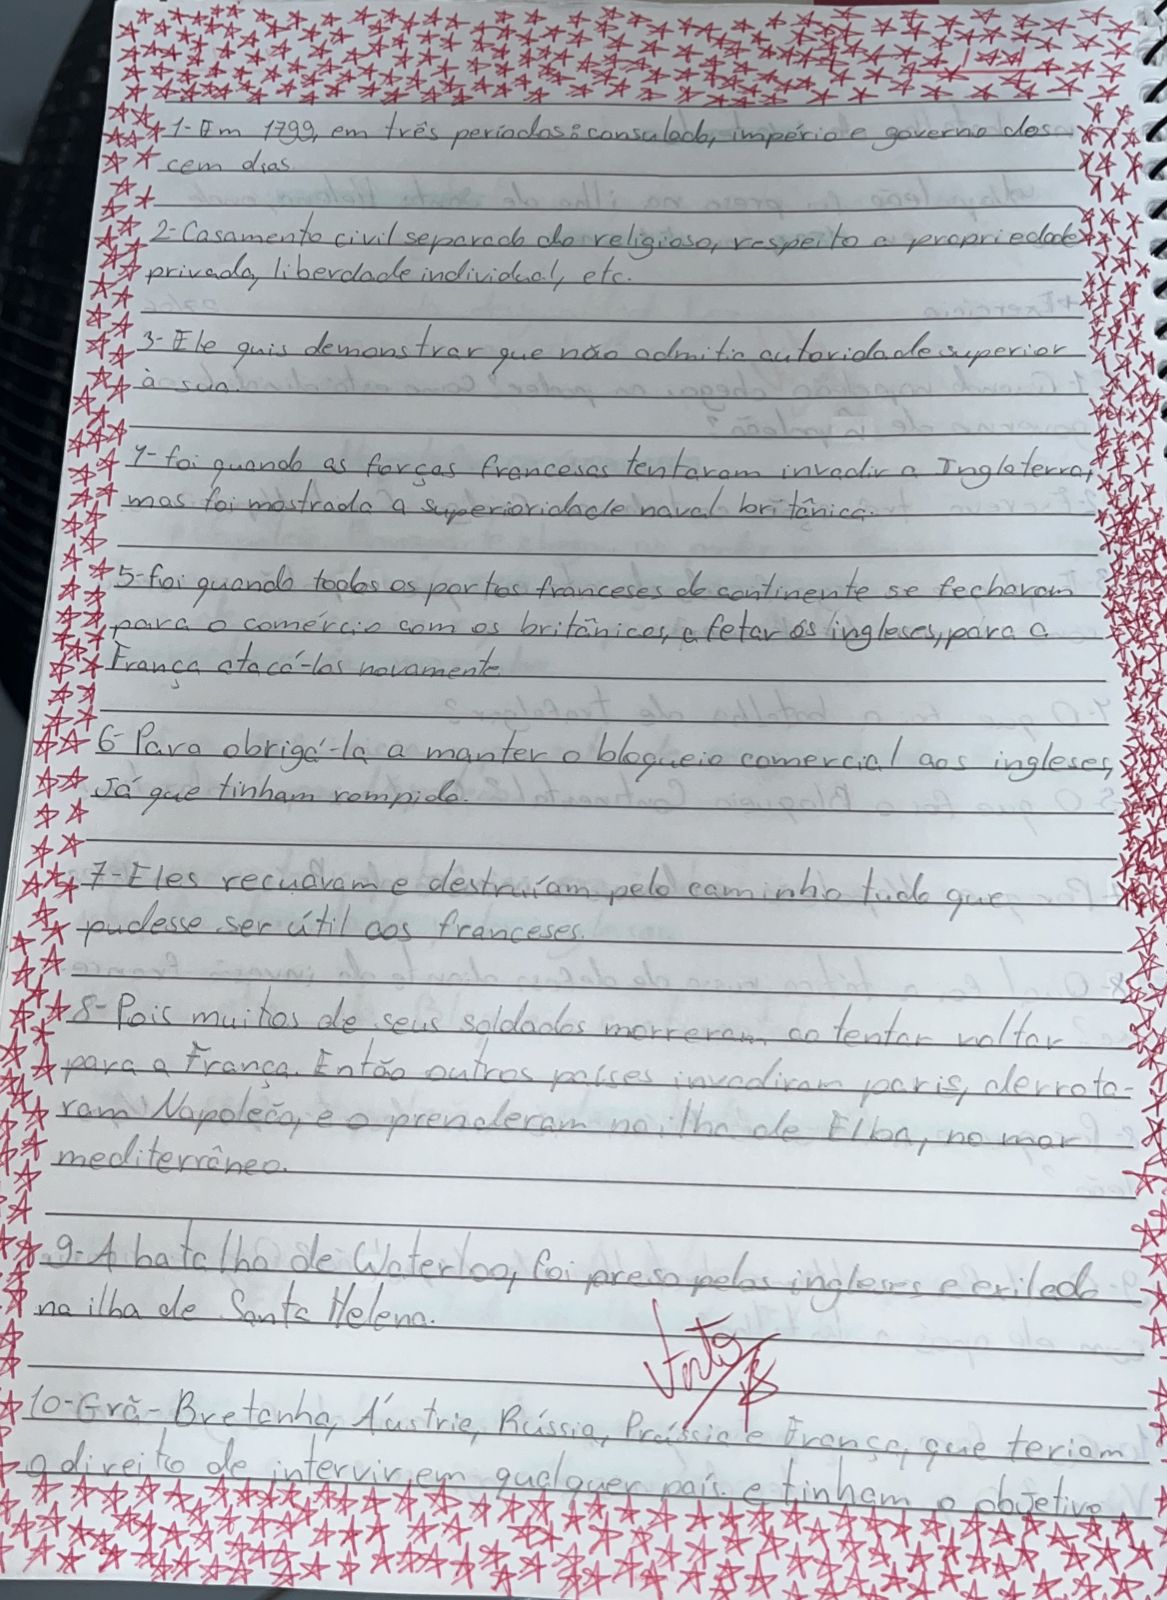 1- Em 1799, em três períodos: consulado, império e governo dos
cem dias
2- Casamento civil separado do religioso, respeito a propriedade
privada, liberdade individual, etc.
3- Ele quis demonstrar que não admitia autoridade superior
à sua.
4- foi quando as forças francesas tentaram invadir a Inglaterra,
mas foi mostrada a superioridade naval britânica.
5- foi quando todos os portos franceses do continente se fecharam
para o comércio com os britânicos, afetar os ingleses, para a
França atacá-los novamente
6- Para obrigá-la a manter o bloqueio comercial aos ingleses,
Já que tinham rompido.
7- Eles recuavam e destruíam pelo caminho tudo que
pudesse ser útil aos franceses.
8- Pois muitos de seus soldados morreram ao tentar voltar
para a França. Então outros países invadiram paris, derrota-
ram Napoleão, e o prenderam na ilha de Elba, no mar
mediterrâneo.
9- A batalha de Waterloo, foi preso pelos ingleses e exilado
na ilha de Santa Helena.
Visto
10- Grã-Bretanha, Áustria, Rússia, Prússia e França, que teriam
o direito de intervir em qualquer país e tinham o objetivo